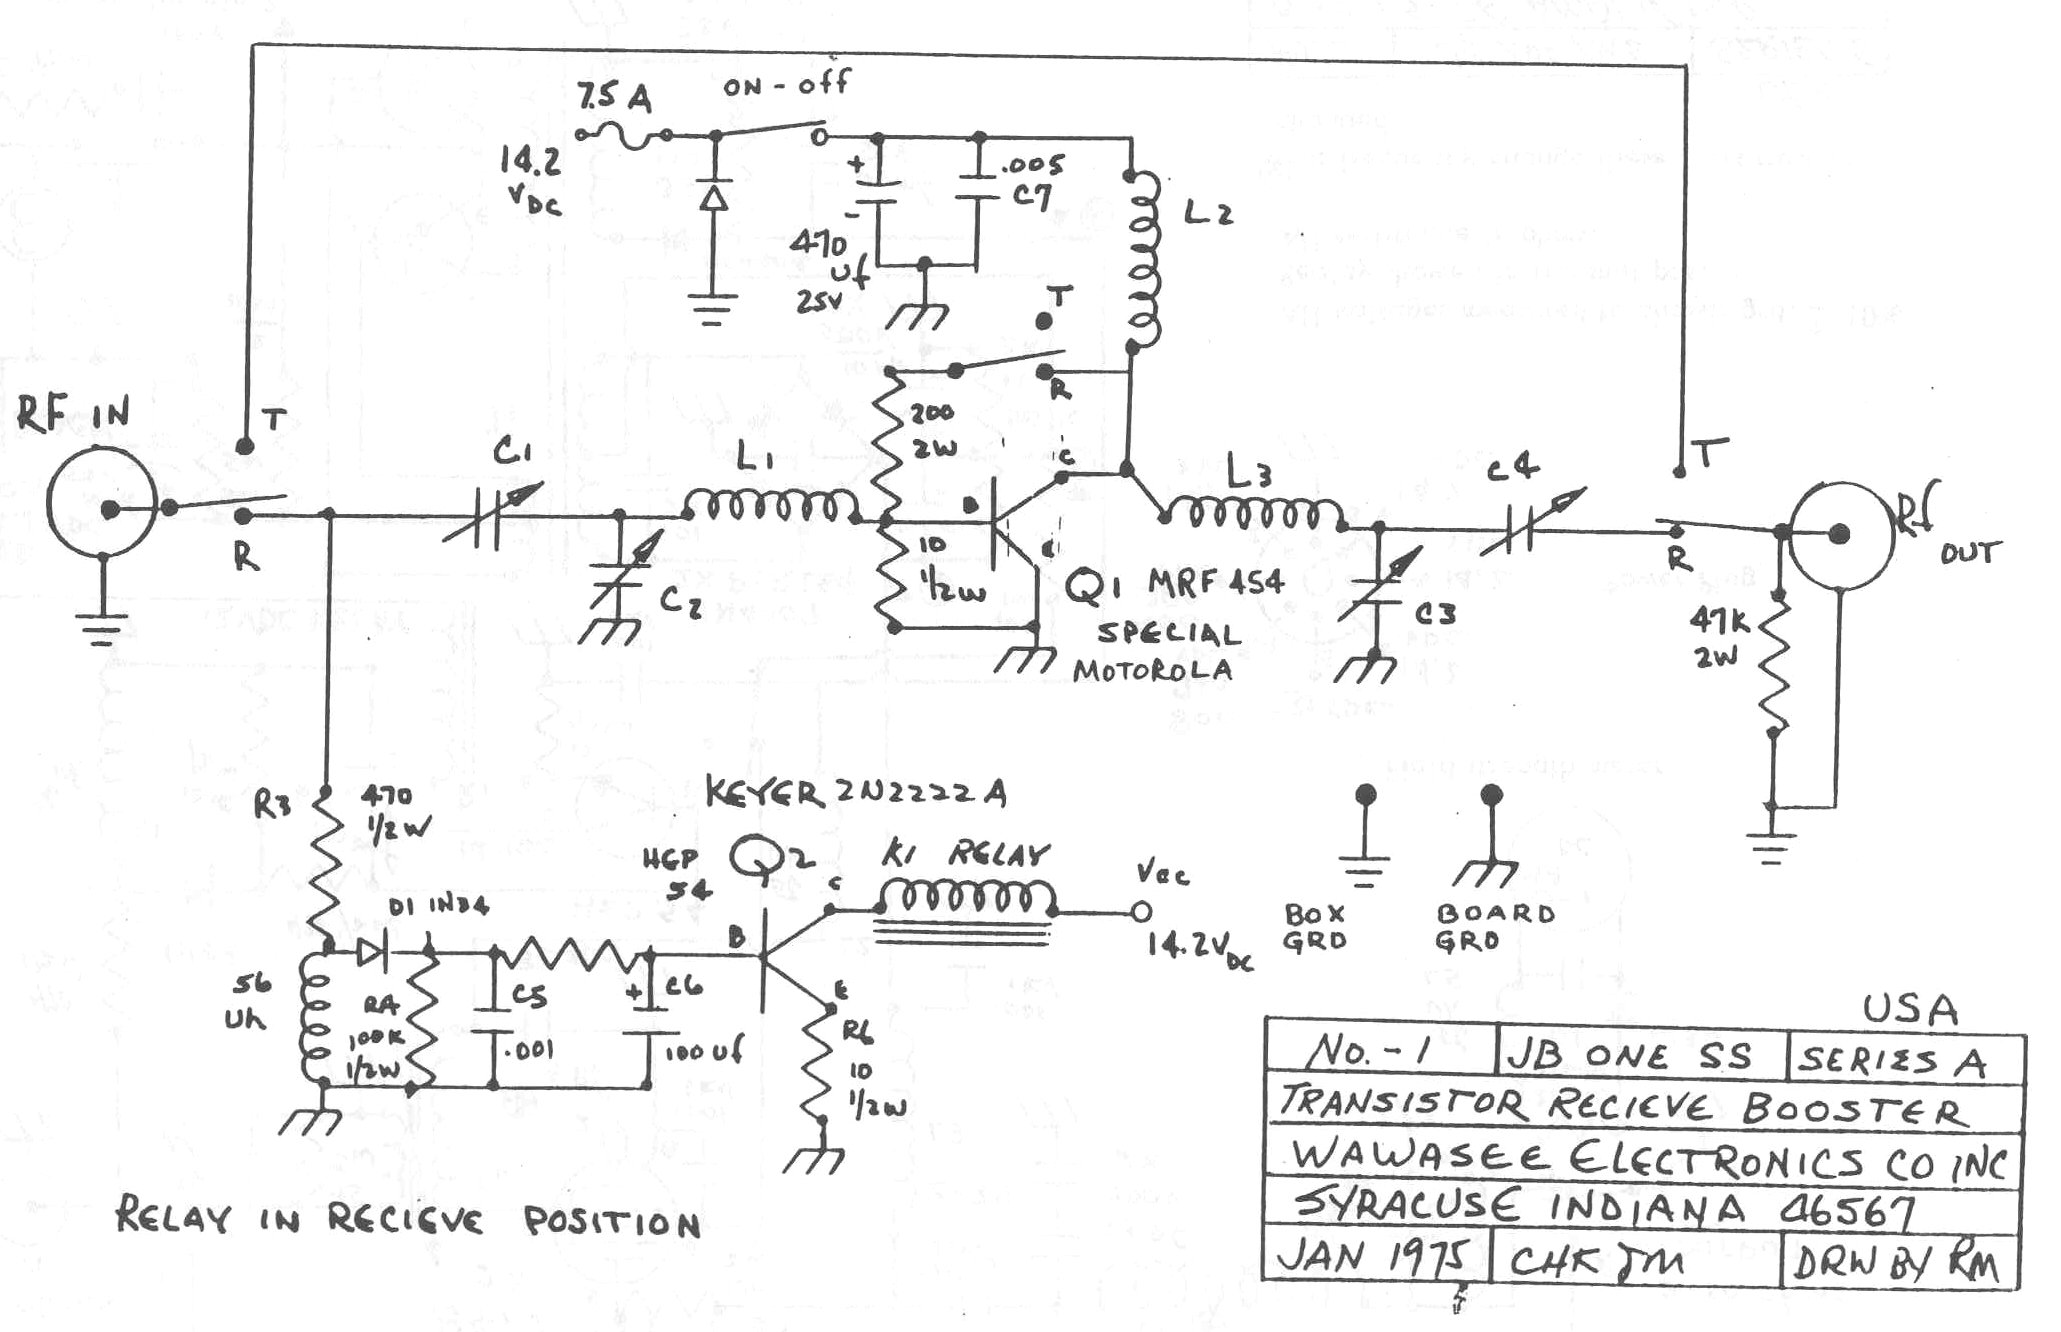 7.5 A
ON - off
14.2
VDC
+
-
470
uf
25V
.005
C7
L2
T
R
RF IN
T
R
C1
C2
L1
200
2W
10
1/2W
B
C
Q1 MRF 454
SPECIAL
MOTOROLA
L3
C4
C3
T
R
Rf
OUT
47K
2W
R3
470
1/2W
KEYER 2N2222A
HEP
54
Q2
K1 RELAY
Vcc
14.2VDC
D1 IN34
56
Uh
R4
100K
1/2W
C5
.001
+
C6
100 uf
B
C
E
R6
10
1/2W
BOX
GRD
BOARD
GRD
RELAY IN RECIEVE POSITION
USA
No. - 1
JB ONE SS
SERIES A
TRANSISTOR RECIEVE BOOSTER
WAWASEE ELECTRONICS CO INC
SYRACUSE INDIANA 46567
JAN 1975
CHK JM
DRW BY RM